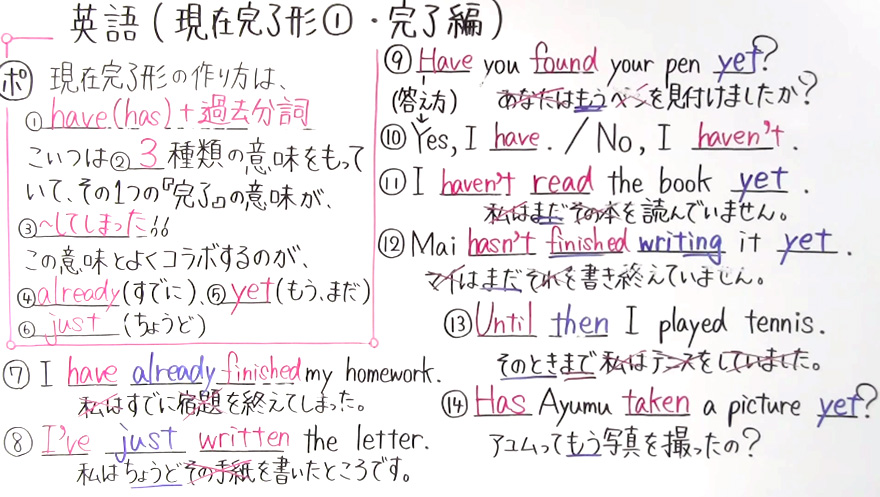 英語(現在完了形①・完了編)
ポ 現在完了形の作り方は、
①have(has)+過去分詞
こいつは②3種類の意味をもって
いて、その1つの『完了』の意味が、
③〜してしまった!!
この意味とよくコラボするのが、
④already(すでに)、⑤yet(もう、まだ)
⑥just(ちょうど)
⑦ I have already finished my homework.
私はすでに宿題を終えてしまった。
⑧ I've just written the letter.
私はちょうどその手紙を書いたところです。
⑨ Have you found your pen yet?
(答え方) あなたはもうペンを見付けましたか?
⑩ Yes, I have. / No, I haven't.
⑪ I haven't read the book yet.
私はまだその本を読んでいません。
⑫ Mai hasn't finished writing it yet.
マイはまだそれを書き終えていません。
⑬ Until then I played tennis.
そのときまで私はテニスをしていました。
⑭ Has Ayumu taken a picture yet?
アユムってもう写真を撮ったの?